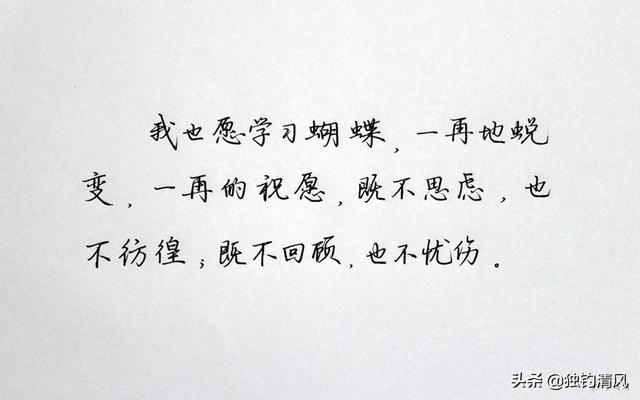 我也愿学习蝴蝶，一再地蜕
变，一再的祝愿，既不思虑，也
不彷徨；既不回顾，也不忧伤。
头条 @独钓清风